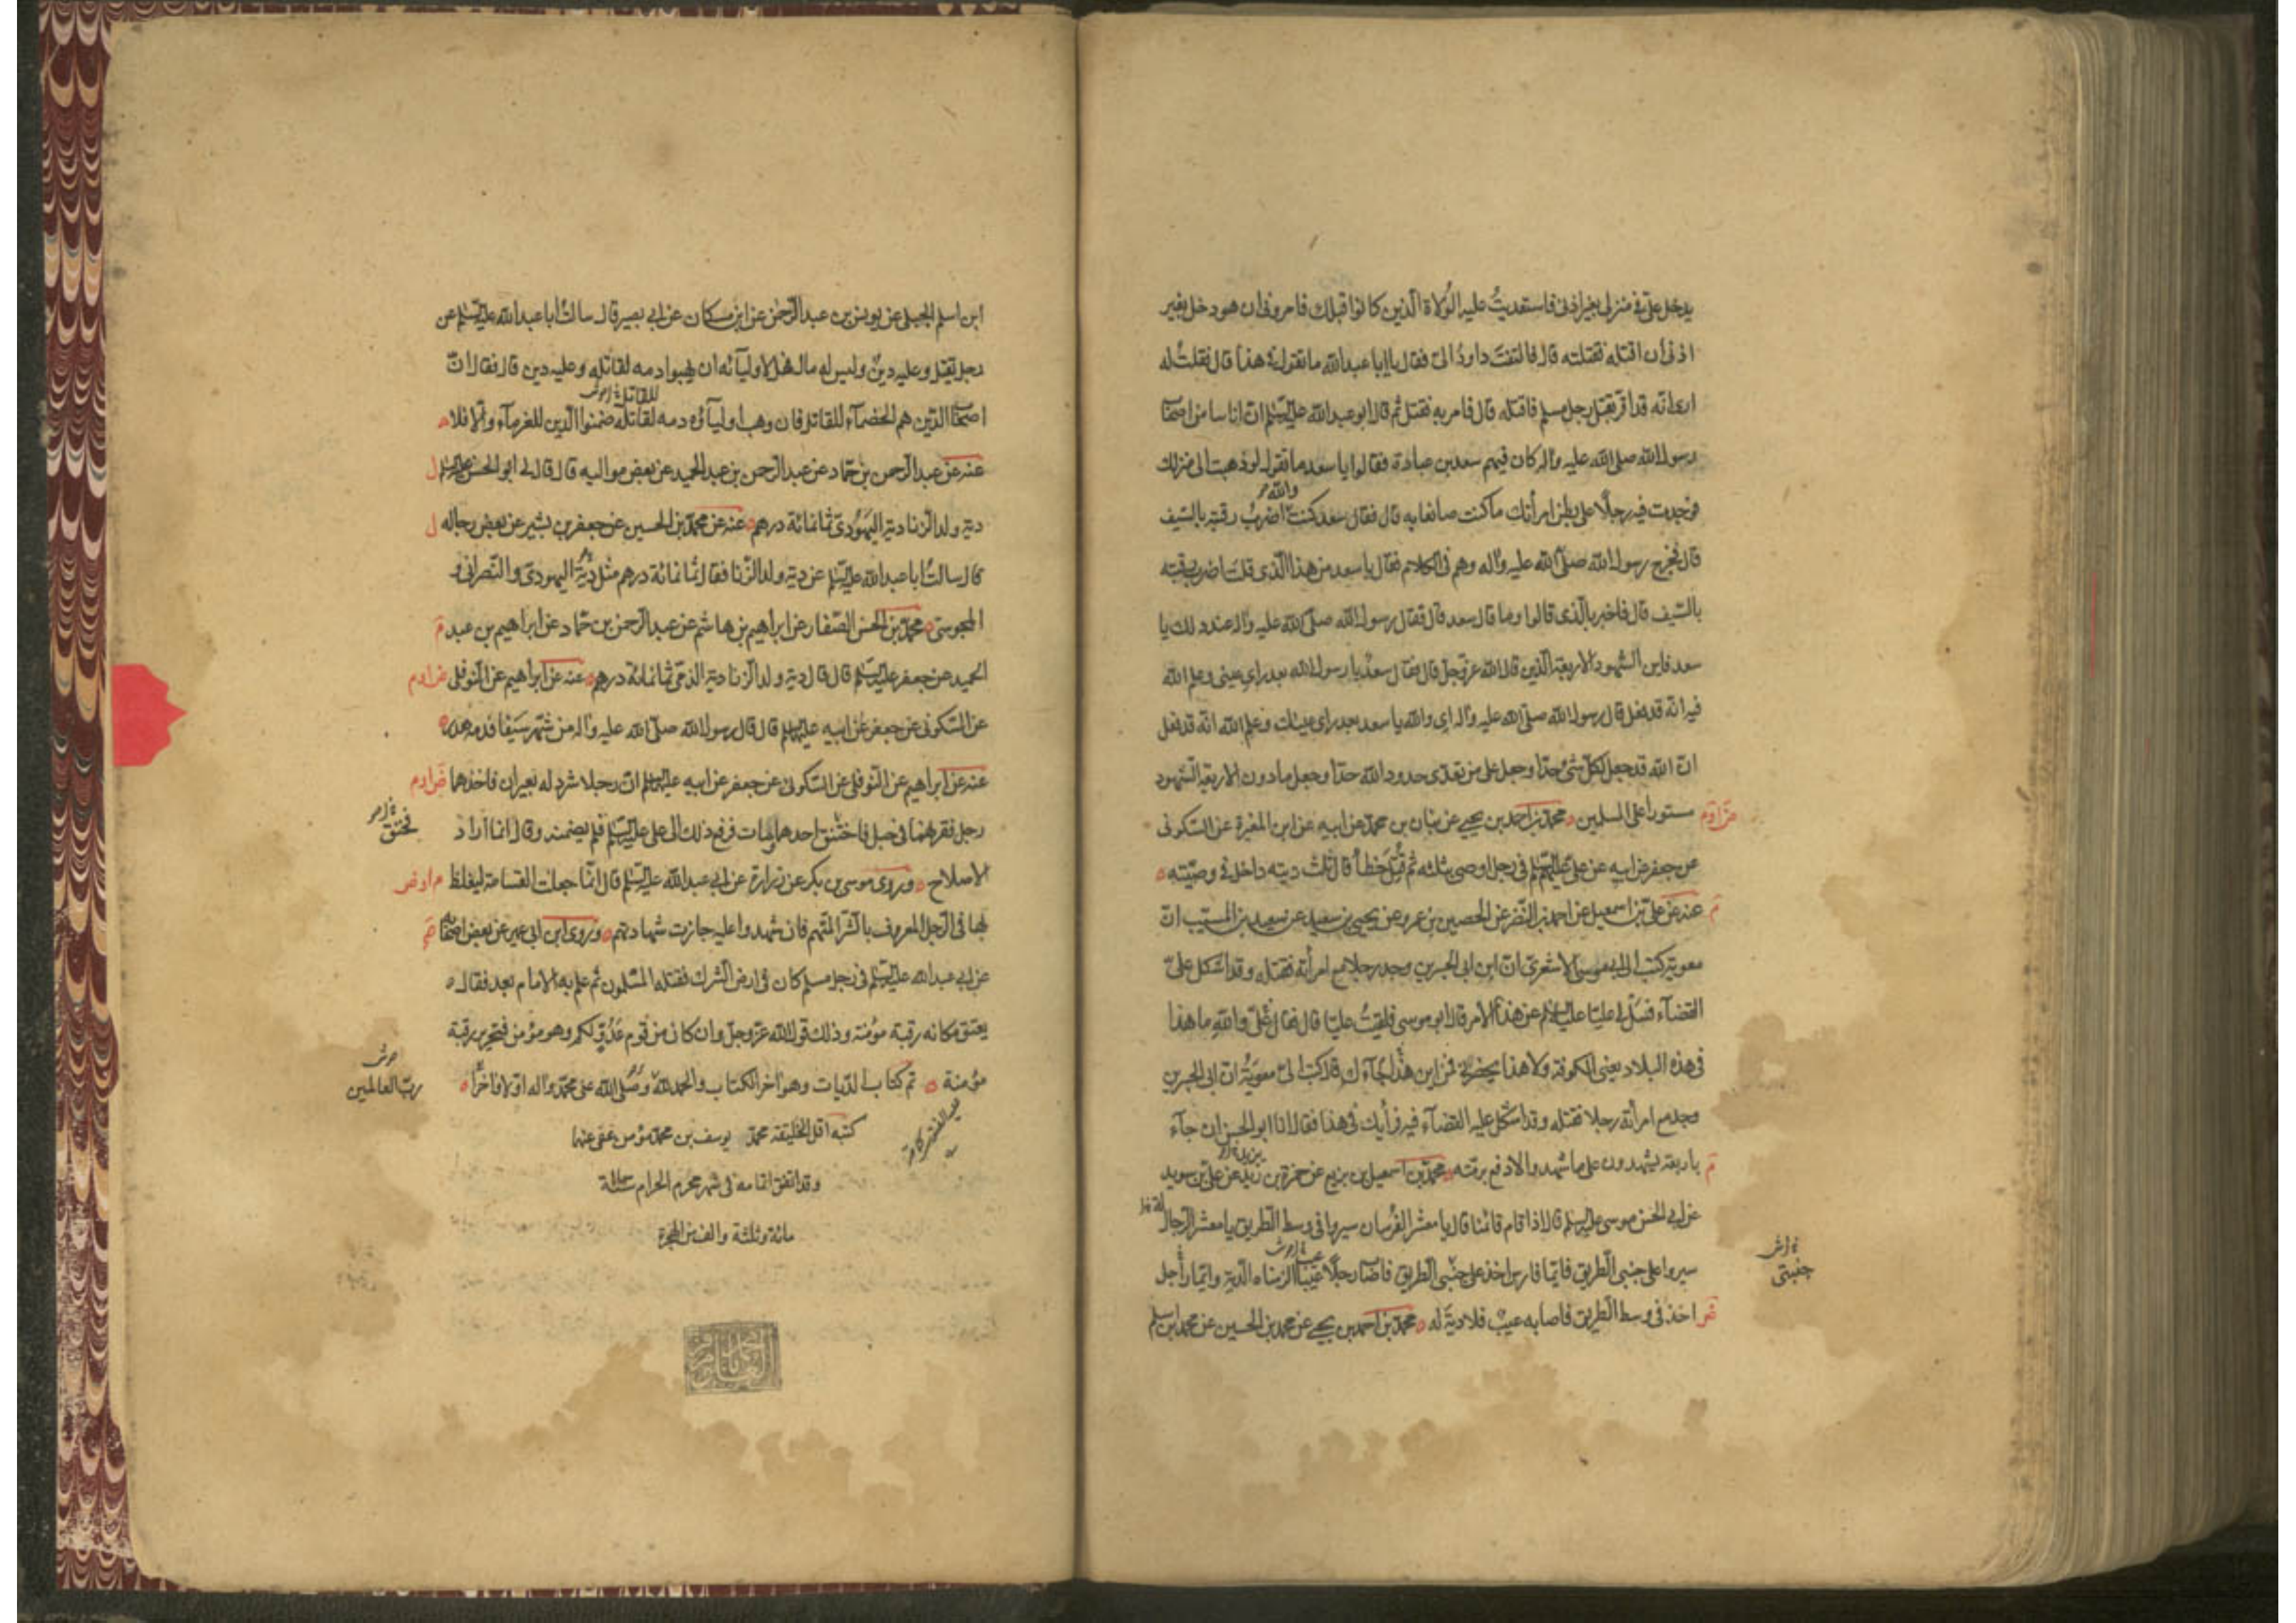 يدخل علىّ فى منزلى بغير اذنى فاستعديتُ عليه الوُلاة الّذين كانوا قبلك فامرونى ان هو دخل بغير
اذنى أن اقتله فقتلته قال فالتفتَ داودُ الىّ فقال يا ابا عبدالله ما تقول فى هذا قال فقلتُ له
ارى انّه قد اقرّ بقتل رجل مسلم فاقتله قال فامر به فقتل ثم قال ابو عبدالله عليه السلم انّ اناسا من اصحاب
رسول الله صلى الله عليه واله كان فيهم سعد بن عبادة فقالوا يا سعد ما تقول لو ذهبت الى منزلك
فوجدت فيه رجلًا على بطن امرأتك ما كنت صانعا به قال فقال سعد كنت والله اضربُ رقبته بالسّيف
قال فخرج رسول الله صلّى الله عليه واله وهم فى الكلام فقال يا سعد من هذا الّذى قلت اضرب رقبته
بالسّيف قال فاخبر بالّذى قالوا وما قال سعد قال فقال رسول الله صلى الله عليه واله عند ذلك يا
سعد فاين الشّهود الاربعة الّذين قال الله عزّوجلّ قال فقال سعدٌ يا رسول الله بعد راى عينى وعلم الله
فيه انّه قد فعل قال رسول الله صلّى الله عليه واله اى والله يا سعد بعد راى عينك وعلم الله انّه قد فعل
انّ الله قد جعل لكلّ شئ حدّا وجعل على من تعدّى حدود الله حدّا وجعل ما دون الاربعة الشّهود
مستورا على المسلمين محمّد بن احمد بن يحيى عن بنان بن محمّد عن ابيه عن ابن المغيرة عن السّكونى
عن جعفر عن ابيه عن علىّ عليهم السلم فى رجل اوصى بثلثه ثم قُتِلَ خطأ قال ثلث ديته داخل فى وصيّته
عنه عن علىّ بن اسمعيل عن احمد بن النّضر عن الحصين بن عمرو عن يحيى بن سعيد عن سعيد بن المسيّب انّ
معوية كتب الى ابى موسى الاشعرىّ انّ ابن ابى الجسرين وجد رجلا مع امرأته فقتله وقد اشكل علىّ
القضاء فسَل لى عليّا عليه السلم عن هذا الامر قال ابو موسى فلقيتُ عليّا قال فقال علىّ والله ما هذا
فى هذه البلاد يعنى الكوفة ولا هذا بحضرتى فمن اين هذا جاءك قلت كتب الىّ معويةُ انّ ابن ابى الجسرين
وجد مع امرأته رجلا فقتله وقد اشكل عليه القضاء فيه فرأيك فى هذا فقال انا ابو الحسن ان جاء
باربعة يشهدون على ما شهد والا دفع برمّته محمّد بن اسمعيل بن بزيع عن حمزة بن زيد عن علىّ بن سويد
عن ابى الحسن موسى عليه السلم قال اذا قام قائمنا قال يا معشر الفُرسان سيروا فى وسط الطّريق يا معشر الرّجالة
سيروا على جنبى الطّريق فايّما فارس اخذ على جنبى الطّريق فاصاب رجلًا عيبٌ الزمناه الدّية وايّما راجل
جنبتى
اخذ فى وسط الطّريق فاصابه عيبٌ فلا ديةَ له محمّد بن احمد بن يحيى عن محمد بن الحسين عن محمّد بن اسلم
ابن اسلم الجبلى عن يونس بن عبد الرّحمن عن ابن مسكان عن ابى بصير قال سالتُ ابا عبدالله عليه السلم عن
رجل يقتل وعليه دينٌ وليس له مال فهل لاوليآئه ان يهبوا دمه لقاتله وعليه دين قال فقال انّ
للقاتل
اصحاب الدّين هم الخصمآء للقاتل فان وهب اوليآؤه دمه لقاتله ضمنوا الدّين للغرمآء والّا فلا
عنه عن عبد الرّحمن بن حمّاد عن عبد الرّحمن بن عبد الحميد عن بعض مواليه قال قال لى ابو الحسن عليه السلم
دية ولد الزّنا دية اليهودىّ ثمانمائة درهم عنه عن محمّد بن الحسين عن جعفر بن بشير عن بعض رجاله
قال سالتُ ابا عبدالله عليه السلم عن دية ولد الزّنا فقال ثمانمائة درهم مثل دية اليهودىّ والنّصرانى و
المجوسىّ محمّد بن الحسن الصّفار عن ابراهيم بن هاشم عن عبد الرّحمن بن حمّاد عن ابراهيم بن عبد
الحميد عن جعفر عليه السلم قال قال دية ولد الزّنا دية الذمّى ثمانمائة درهم عنه عن ابراهيم عن النّوفلى
عن السّكونى عن جعفر عن ابيه عليهما السلم قال قال رسول الله صلى الله عليه واله من شهر سَيفا فدمه هدر
عنه عن ابراهيم عن النّوفلى عن السّكونى عن جعفر عن ابيه عليهما السلم انّ رجلا شرد له بعيران فاخذهما
رجل فقرنهما فى حبل فاختنق احدهما ومات فرفع ذلك الى علىّ عليه السلم فلم يضمنه وقال انّما اراد
فخنق
الاصلاح وروى موسى بن بكر عن زرارة عن ابى عبدالله عليه السلم قال انّما جعلت القسامة ليغلظ
بها فى الرّجل المعروف بالشّرّ المتّهم فان شهدوا عليه جازت شهادتهم وروى ابن ابى عمير عن بعض اصحابه
عن ابى عبدالله عليه السلم فى رجل مسلم كان فى ارض الشّرك فقتله المسلمون ثم علم به الامام بعد فقال
يعتق مكانه رقبة مؤمنة وذلك قول الله عزّوجلّ وان كان من قوم عَدُوٍّ لكم وهو مؤمن فتحرير رقبة
مؤمنة تم كتاب الدّيات وهو آخر الكتاب والحمد لله وصلّى الله على محمّد واله اوّلا وآخرًا
ربّ العالمين
كتبه اقلّ الخليقة محمّد يوسف بن محمّد مؤمن عفى عنهما
وقد اتفق اتمامه فى شهر محرم الحرام سنة
مائة وثلثة والف من الهجرة